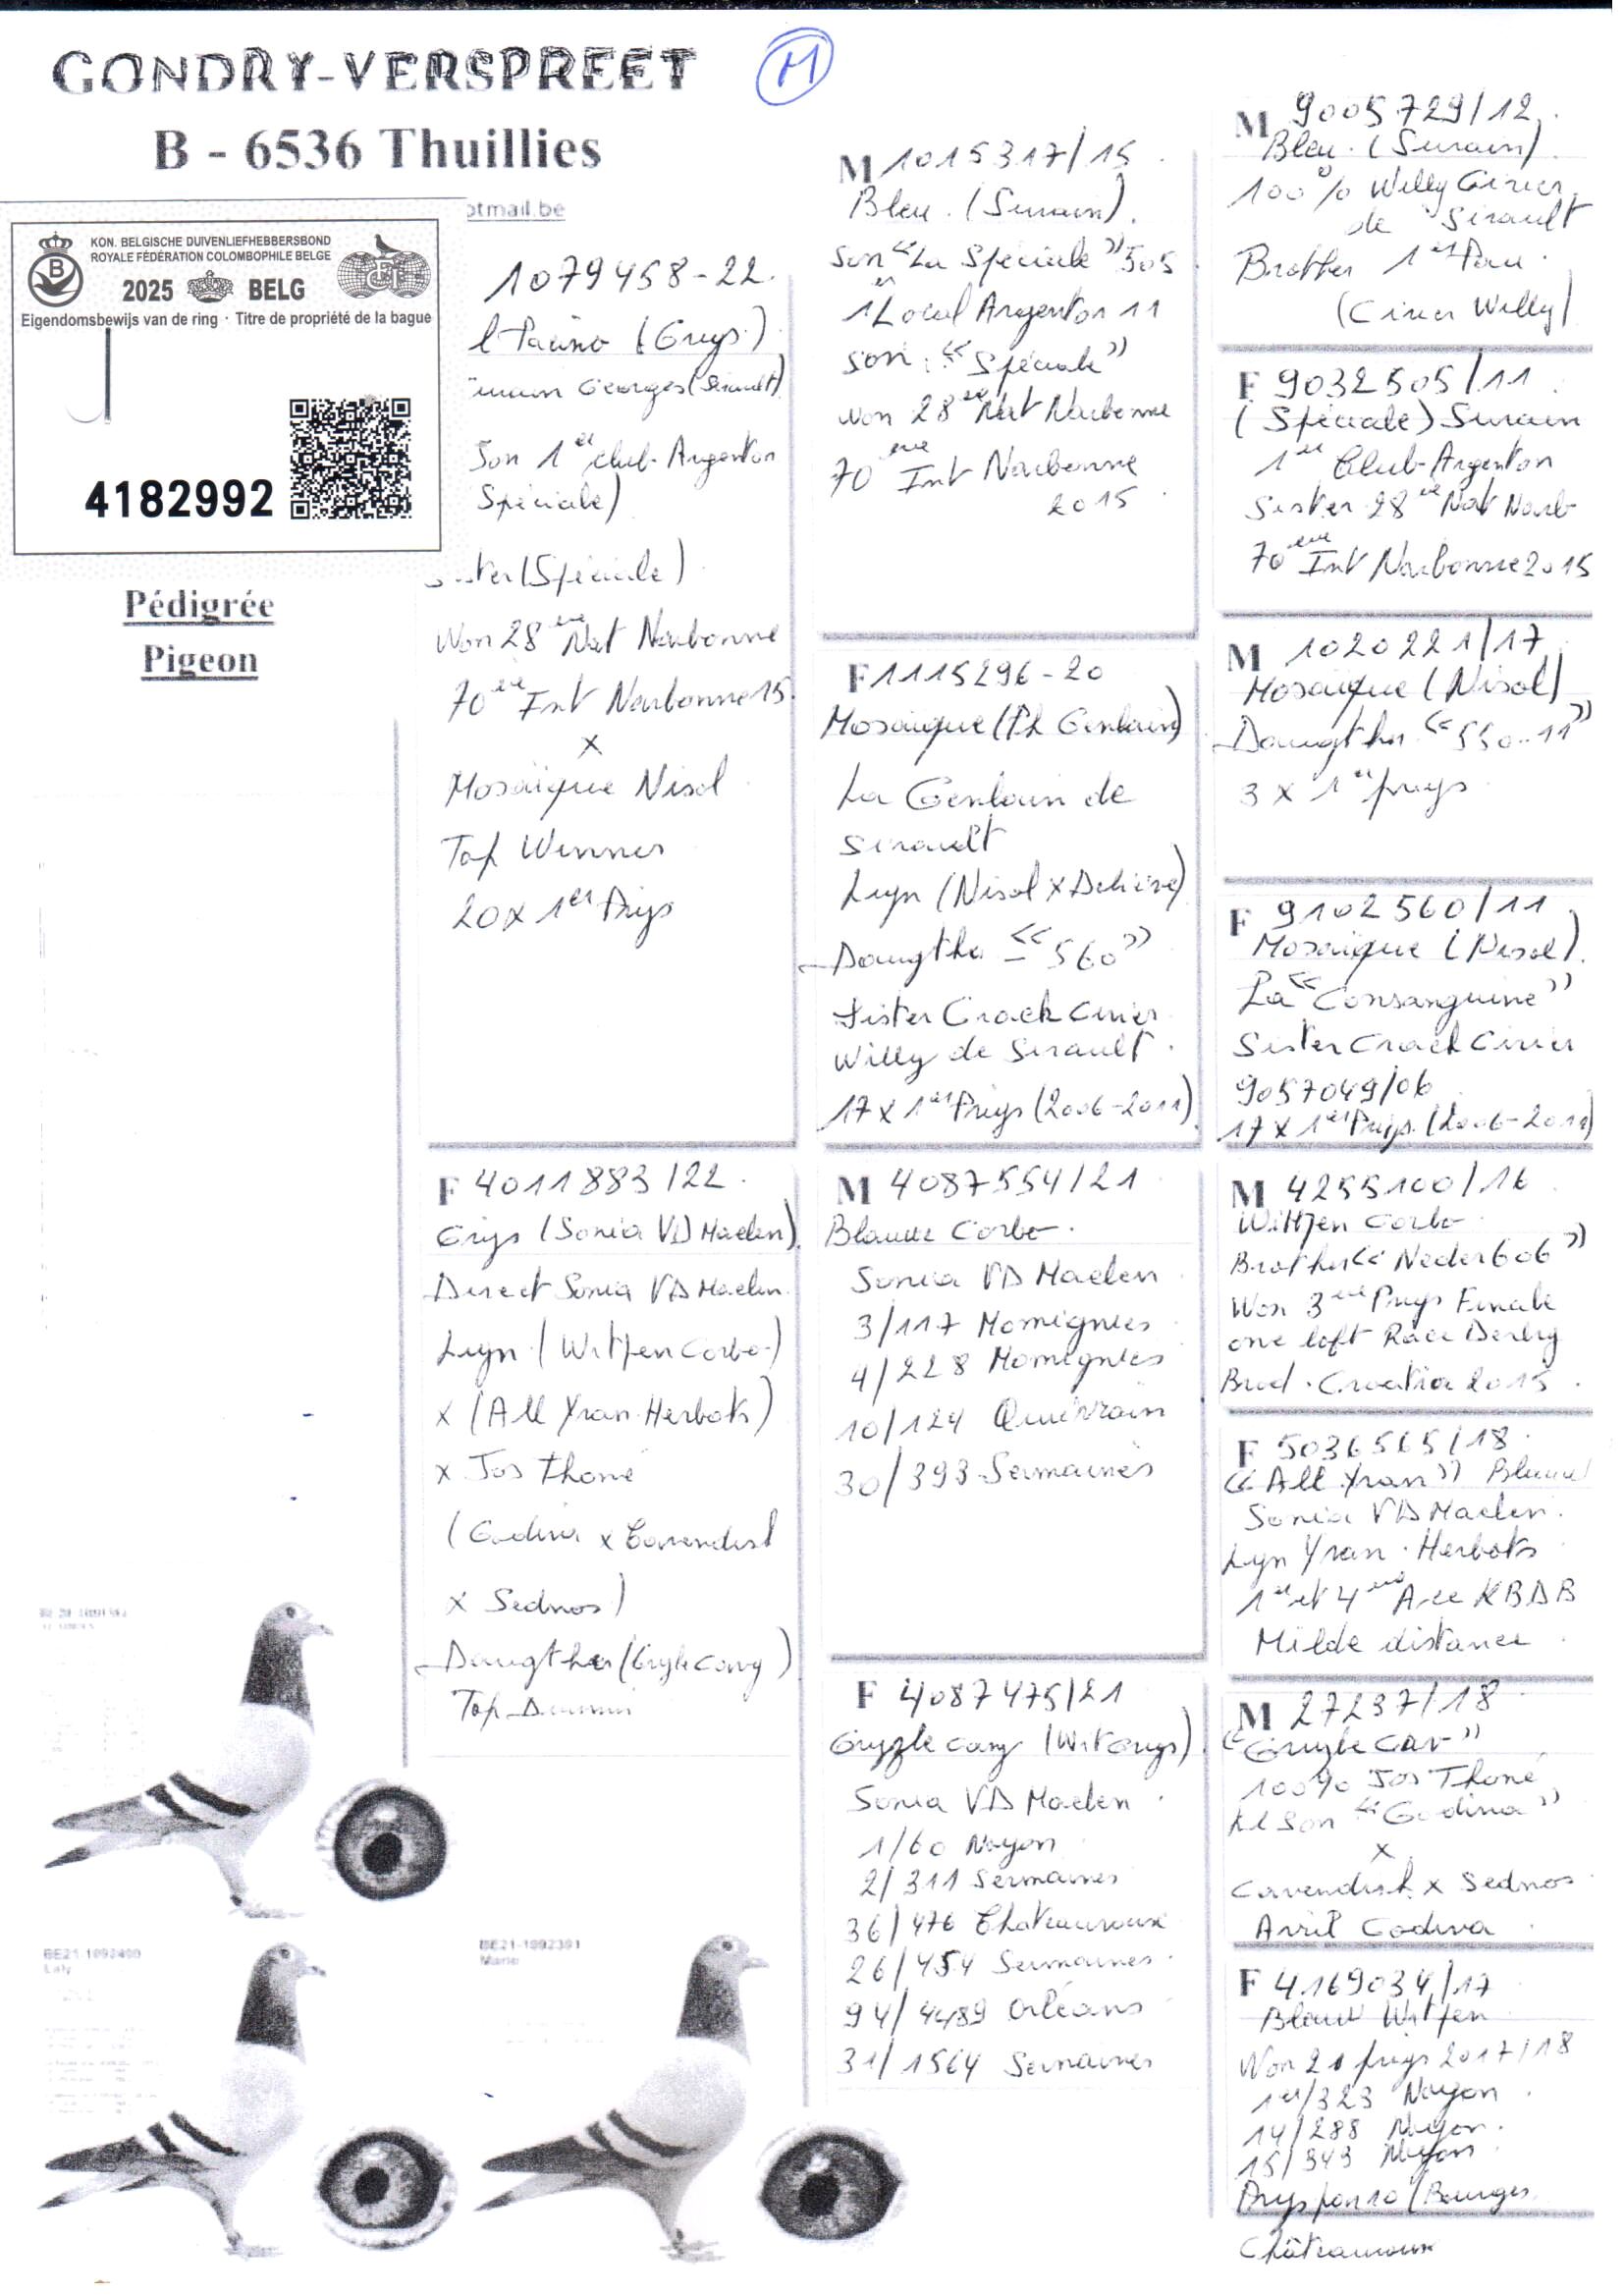 GONDRY-VERSPREET
M
B - 6536 Thuillies
otmail.be
KON. BELGISCHE DUIVENLIEFHEBBERSBOND
ROYALE FÉDÉRATION COLOMBOPHILE BELGE
2025 BELG
Eigendomsbewijs van de ring · Titre de propriété de la bague
4182992
Pédigrée
Pigeon
1079458-22.
(Grys)
Georges (Sirault)
Son 1er club Argenton
Spéciale)
(Spéciale)
Won 28ème Nat Narbonne
70ème Int Narbonne 15.
x
Mosaïque Nisol
Top Winner
20 x 1er Prijs
F 4011883/22.
Grijs (Sonia VD Maelen)
Direct Sonia VD Maelen
Lijn (Witpen Corbo)
x (All Yran Herbots)
x Jos Thoné
(Godiva x Cavendish
x Sednos)
Daugther
Top
M 1015317/15
Bleu. (Surain).
Son "La Spéciale" 505
1er Local Argenton 11
Son: "Spéciale"
won 28ème Nat Narbonne
70ème Int Narbonne
2015
F 1115296-20
Mosaïque (Ph Genlain)
La Genlain de
Sirault
Lijn (Nisol x Delière)
Daugther "560"
Sister Crack Cirier
Willy de Sirault.
17 x 1er Prijs (2006-2011)
M 4087554/21
Blauw Corbo.
Sonia VD Maelen
3/117 Momignies
4/228 Momignies
10/124 Quiévrain
30/393 Sermaises
F 4087475/21
(Witgrijs)
Sonia VD Maelen
1/60 Noyon
2/311 Sermaises
36/476 Chateauroux
26/454 Sermaises
94/4489 Orléans
31/1564 Sermaises
M 9005729/12.
Bleu. (Surain).
100% Willy Cirier
de Sirault
Brother 1er Pau.
(Cirier Willy)
F 9032505/11
(Spéciale) Surain
1er Club Argenton
Sister 28ème Nat Narb
70ème Int Narbonne 2015
M 1020221/17
Mosaïque (Nisol)
Daugther "550-11"
3 x 1er prijs
F 9102560/11
Mosaïque (Nisol).
La "Consanguine"
Sister Crack Cirier
9057049/06
17 x 1er Prijs. (2006-2011)
M 4255100/16
Witpen Corbo
Brother "Neder 606"
Won 3ème Prijs Finale
one loft Race Derby
Brod. Croatia 2015.
F 5036565/18.
"All Yran" Blauw
Sonia VD Maelen.
Lijn Yran. Herbots
1er et 4ème Ace KBDB
Milde distance
M 27237/18
100% Jos Thoné
Kl Son "Godiva"
x
Cavendish x Sednos
Avril Godiva
F 4169034/17
Blauw Witpen
Won 21 prijs 2017/18
1er/323 Noyon
14/288 Noyon.
15/343 Noyon
Prijs per 10 (Bourges
Châteauroux
BE21-1092400
Laly
BE21-1092391
Marie